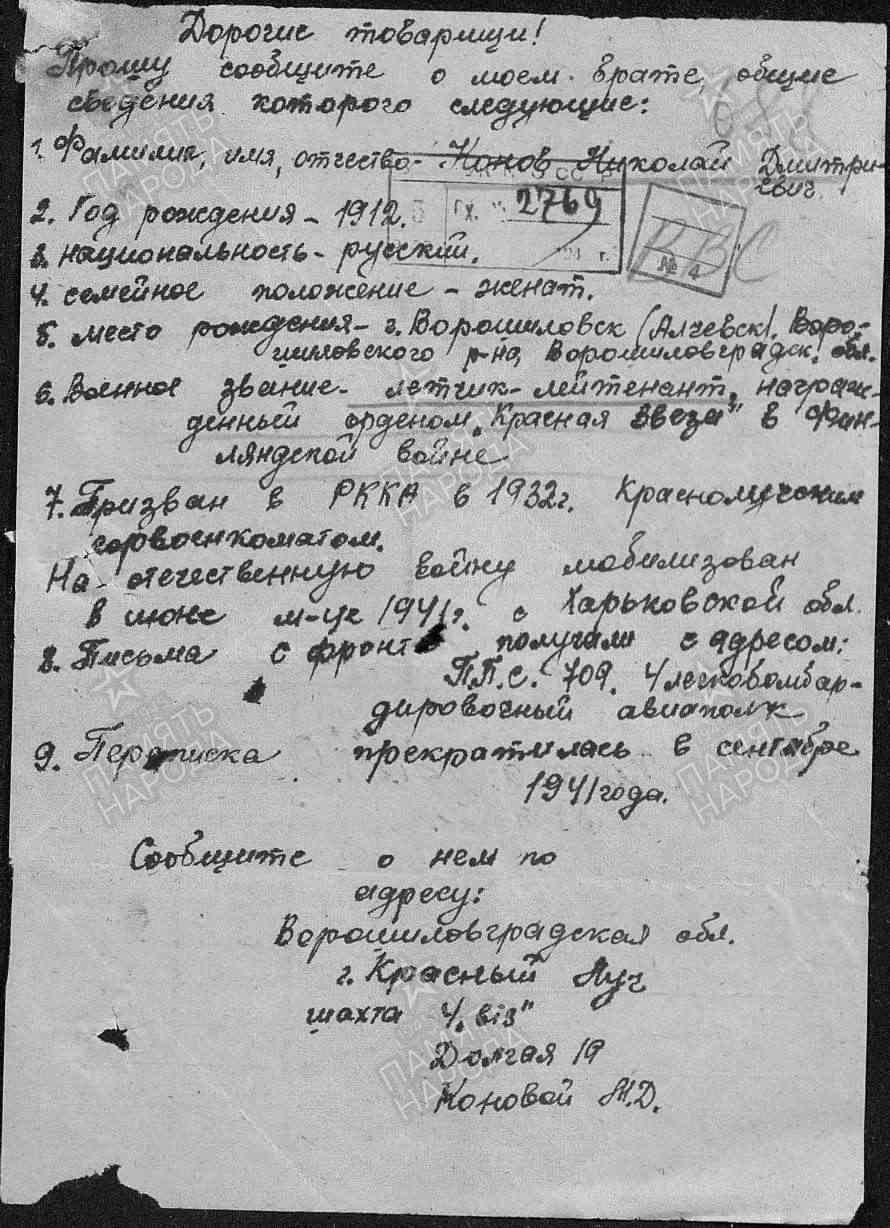 Дорогие товарищи!
Прошу сообщите о моем брате, общие
сведения которого следующие:
1. Фамилия, имя, отчество - Конов Николай Дмитри-
евич.
Вх. № 2769
194 г.
№ 4
ВВС
2. Год рождения - 1912.
3. национальность - русский.
4. семейное положение - женат.
5. место рождения - г. Ворошиловск (Алчевск). Воро-
шиловского р-на, Ворошиловградск. обл.
6. Военное звание - летчик-лейтенант, награж-
денный орденом „Красная Звезда" в Фин-
ляндской войне
7. Призван в РККА в 1932г. Краснолучским
горвоенкоматом.
На отечественную войну мобилизован
в июне м-це 1941г. с Харьковской обл.
8. Письма с фронта получали с адресом:
П.П.С. 709. 4 легкобомбар-
дировочный авиаполк
9. Переписка прекратилась в сентябре
1941 года.
Сообщите о нем по
адресу:
Ворошиловградская обл.
г. Красный Луч
шахта 4
Долгая 19
Коновой М.Д.
ПАМЯТЬ
НАРОДА